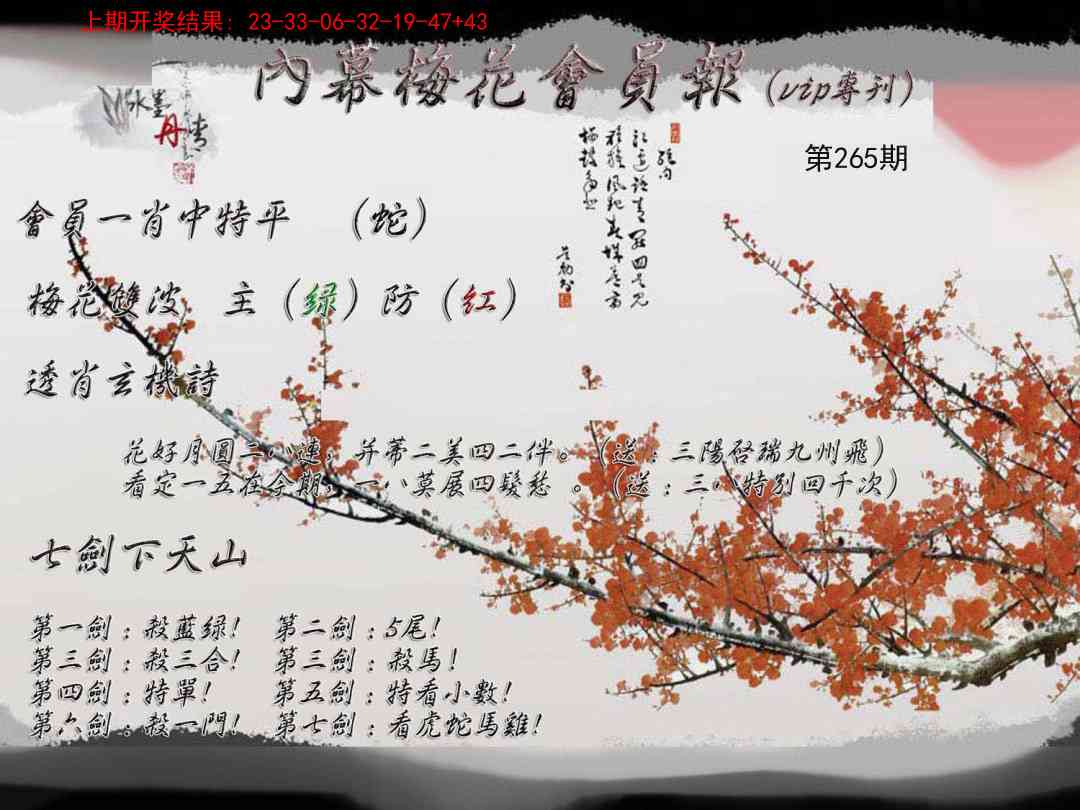 上期开奖结果：23-33-06-32-19-47+43
內幕梅花會員報（vip專刊）
水墨
丹青
第265期
會員一肖中特平　（蛇）
梅花雙波　主（绿）防（红）
透肖玄機詩
花好月圓二八連，并蒂二美四二伴。（送：三陽啓瑞九州飛）
看定一五在今期，一八莫展四髮愁 。（送：三八特別四千次）
七劍下天山
第一劍：殺藍绿！　第二劍：5尾！
第三劍：殺三合！　第三劍：殺馬！
第四劍：特單！　第五劍：特看小數！
第六劍：殺一門！　第七劍：看虎蛇馬雞！